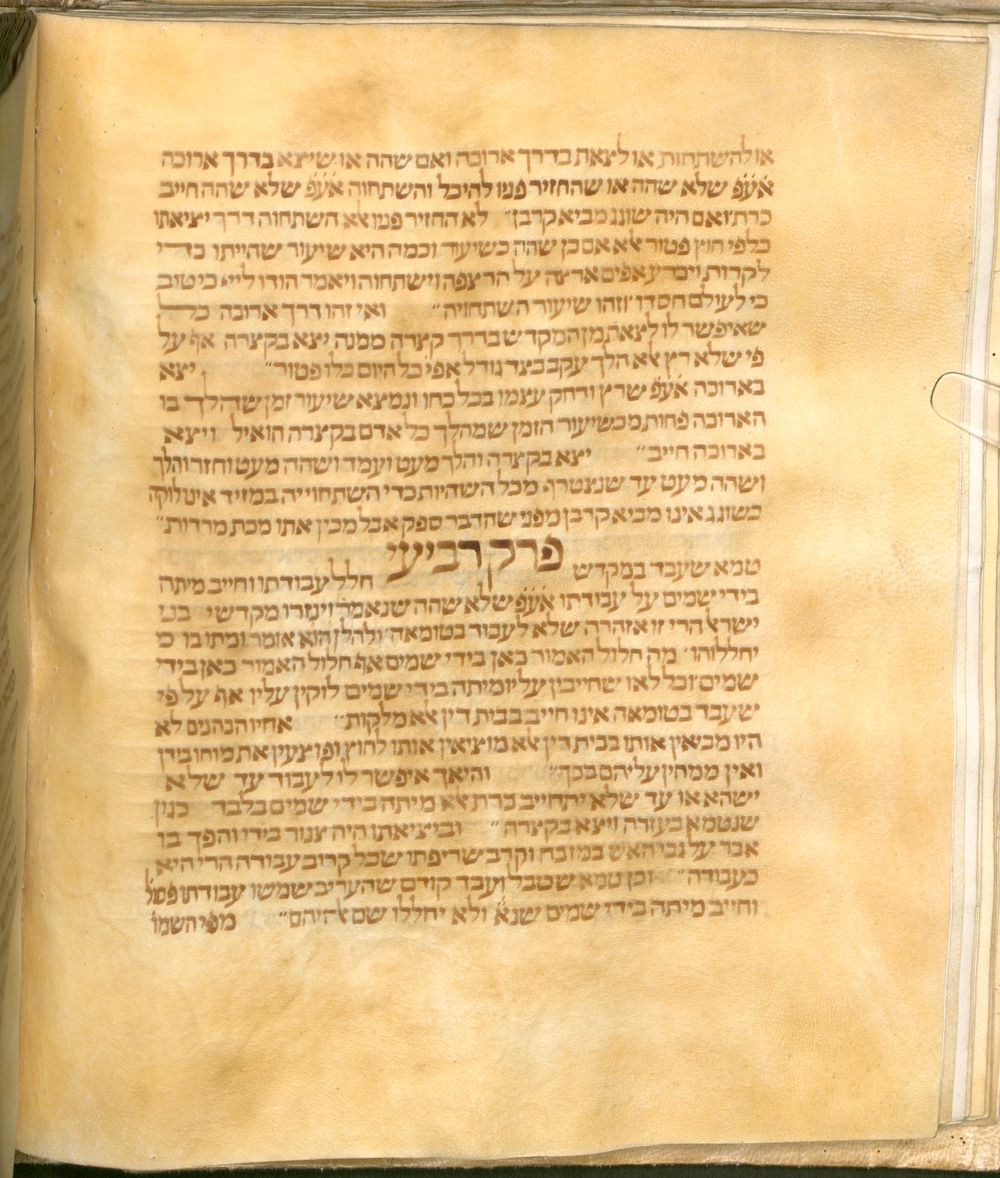 או להשתחות או לצאת בדרך ארוכה ואם שהה או שיצא בדרך ארוכה
אע֗פ֗ שלא שהה או שהחזיר פניו להיכל והשתחוה אע֗פ֗ שלא שהה חייב
כרת ואם היה שוגג מביא קרבן״ לא החזיר פניו אלא השתחוה דרך יציאתו
כלפי חוץ פטור אלא אם כן שהה כשיעור וכמה היא שיעור שהייתו כדי
לקרות ויכרעו אפים ארצה על הרצפה וישתחוה ויאמר הודו לייי כי טוב
כי לעולם חסדו וזהו שיעור השתחויה״ ואי זהו דרך ארוכה כל
שאיפשר לו לצאת מן המקדש שבדרך קצרה ממנה יצא בקצרה אף על
פי שלא רץ אלא הלך עקב בצד גודל אפי׳ כל היום כלו פטור״ יצא
בארוכה אע֗פ֗ שרץ ודחק עצמו בכל כחו ונמצא שיעור זמן שהלך בו
הארוכה פחות מכשיעור הזמן שמהלך כל אדם בקצרה הואיל ויצא
בארוכה חייב״ יצא בקצרה והלך מעט ועמד ושהה מעט וחזר והלך
ושהה מעט עד שנצטרף מכל השהיות כדי השתחוייה במזיד אינו לוקה
בשוגג אינו מביא קרבן מפני שהדבר ספק אבל מכין אתו מכת מרדות״
פרק רביעי
טמא שעבד במקדש חלל עבודתו וחייב מיתה
בידי שמים על עבודתו אע֗פ֗ שלא שהה שנאמר וינזרו מקדשי בני
ישראל הרי זו אזהרה שלא לעבוד בטומאה ולהלן הוא אומר ומתו בו כי
יחללוהו מה חלול האמור כאן בידי שמים אף חלול האמור כאן בידי
שמים וכל לאו שחייבין עליו מיתה בידי שמים לוקין עליו אף על פי
שעבד בטומאה אינו חייב בבית דין אלא מלקות״ אחיו הכהנים לא
היו מביאין אותו בבית דין אלא מוציאין אותו לחוץ ופוצעין את מוחו בידן
ואין ממחין עליהם בכך״ והיאך איפשר לו לעבוד עד שלא
ישהא או עד שלא יתחייב כרת אלא מיתה בידי שמים בלבד כגון
שנטמא בעזרה ויצא בקצרה״ וביציאתו היה צנור בידו והפך בו
אבר על גבי האש במזבח וקרב שריפתו שכל קרוב עבודה הרי היא
כעבודה״ וכן טמא שטבל ועבד קודם שהעריב שמשו עבודתו פסל
וחייב מיתה בידי שמים שנא֗ ולא יחללו שם אלהיהם״ מפי השמו